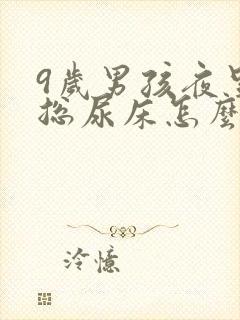 9歲男孩夜里
总尿床怎麼
冷憶